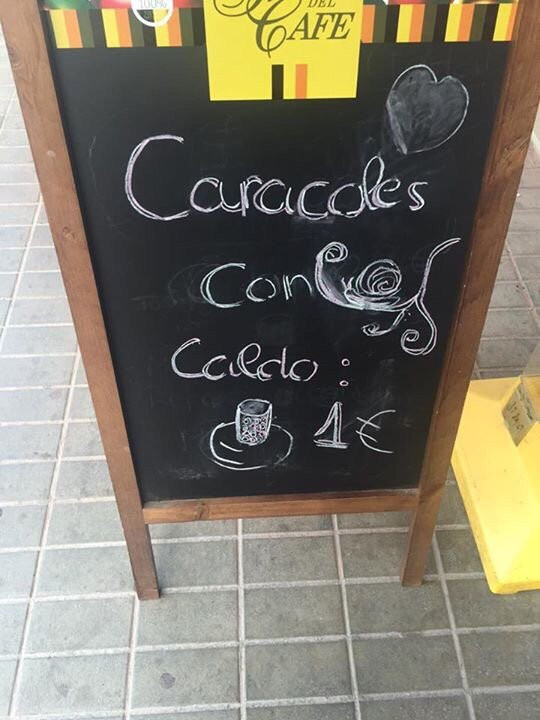 100%
DEL
CAFE
Caracoles
con
Caldo:
1€